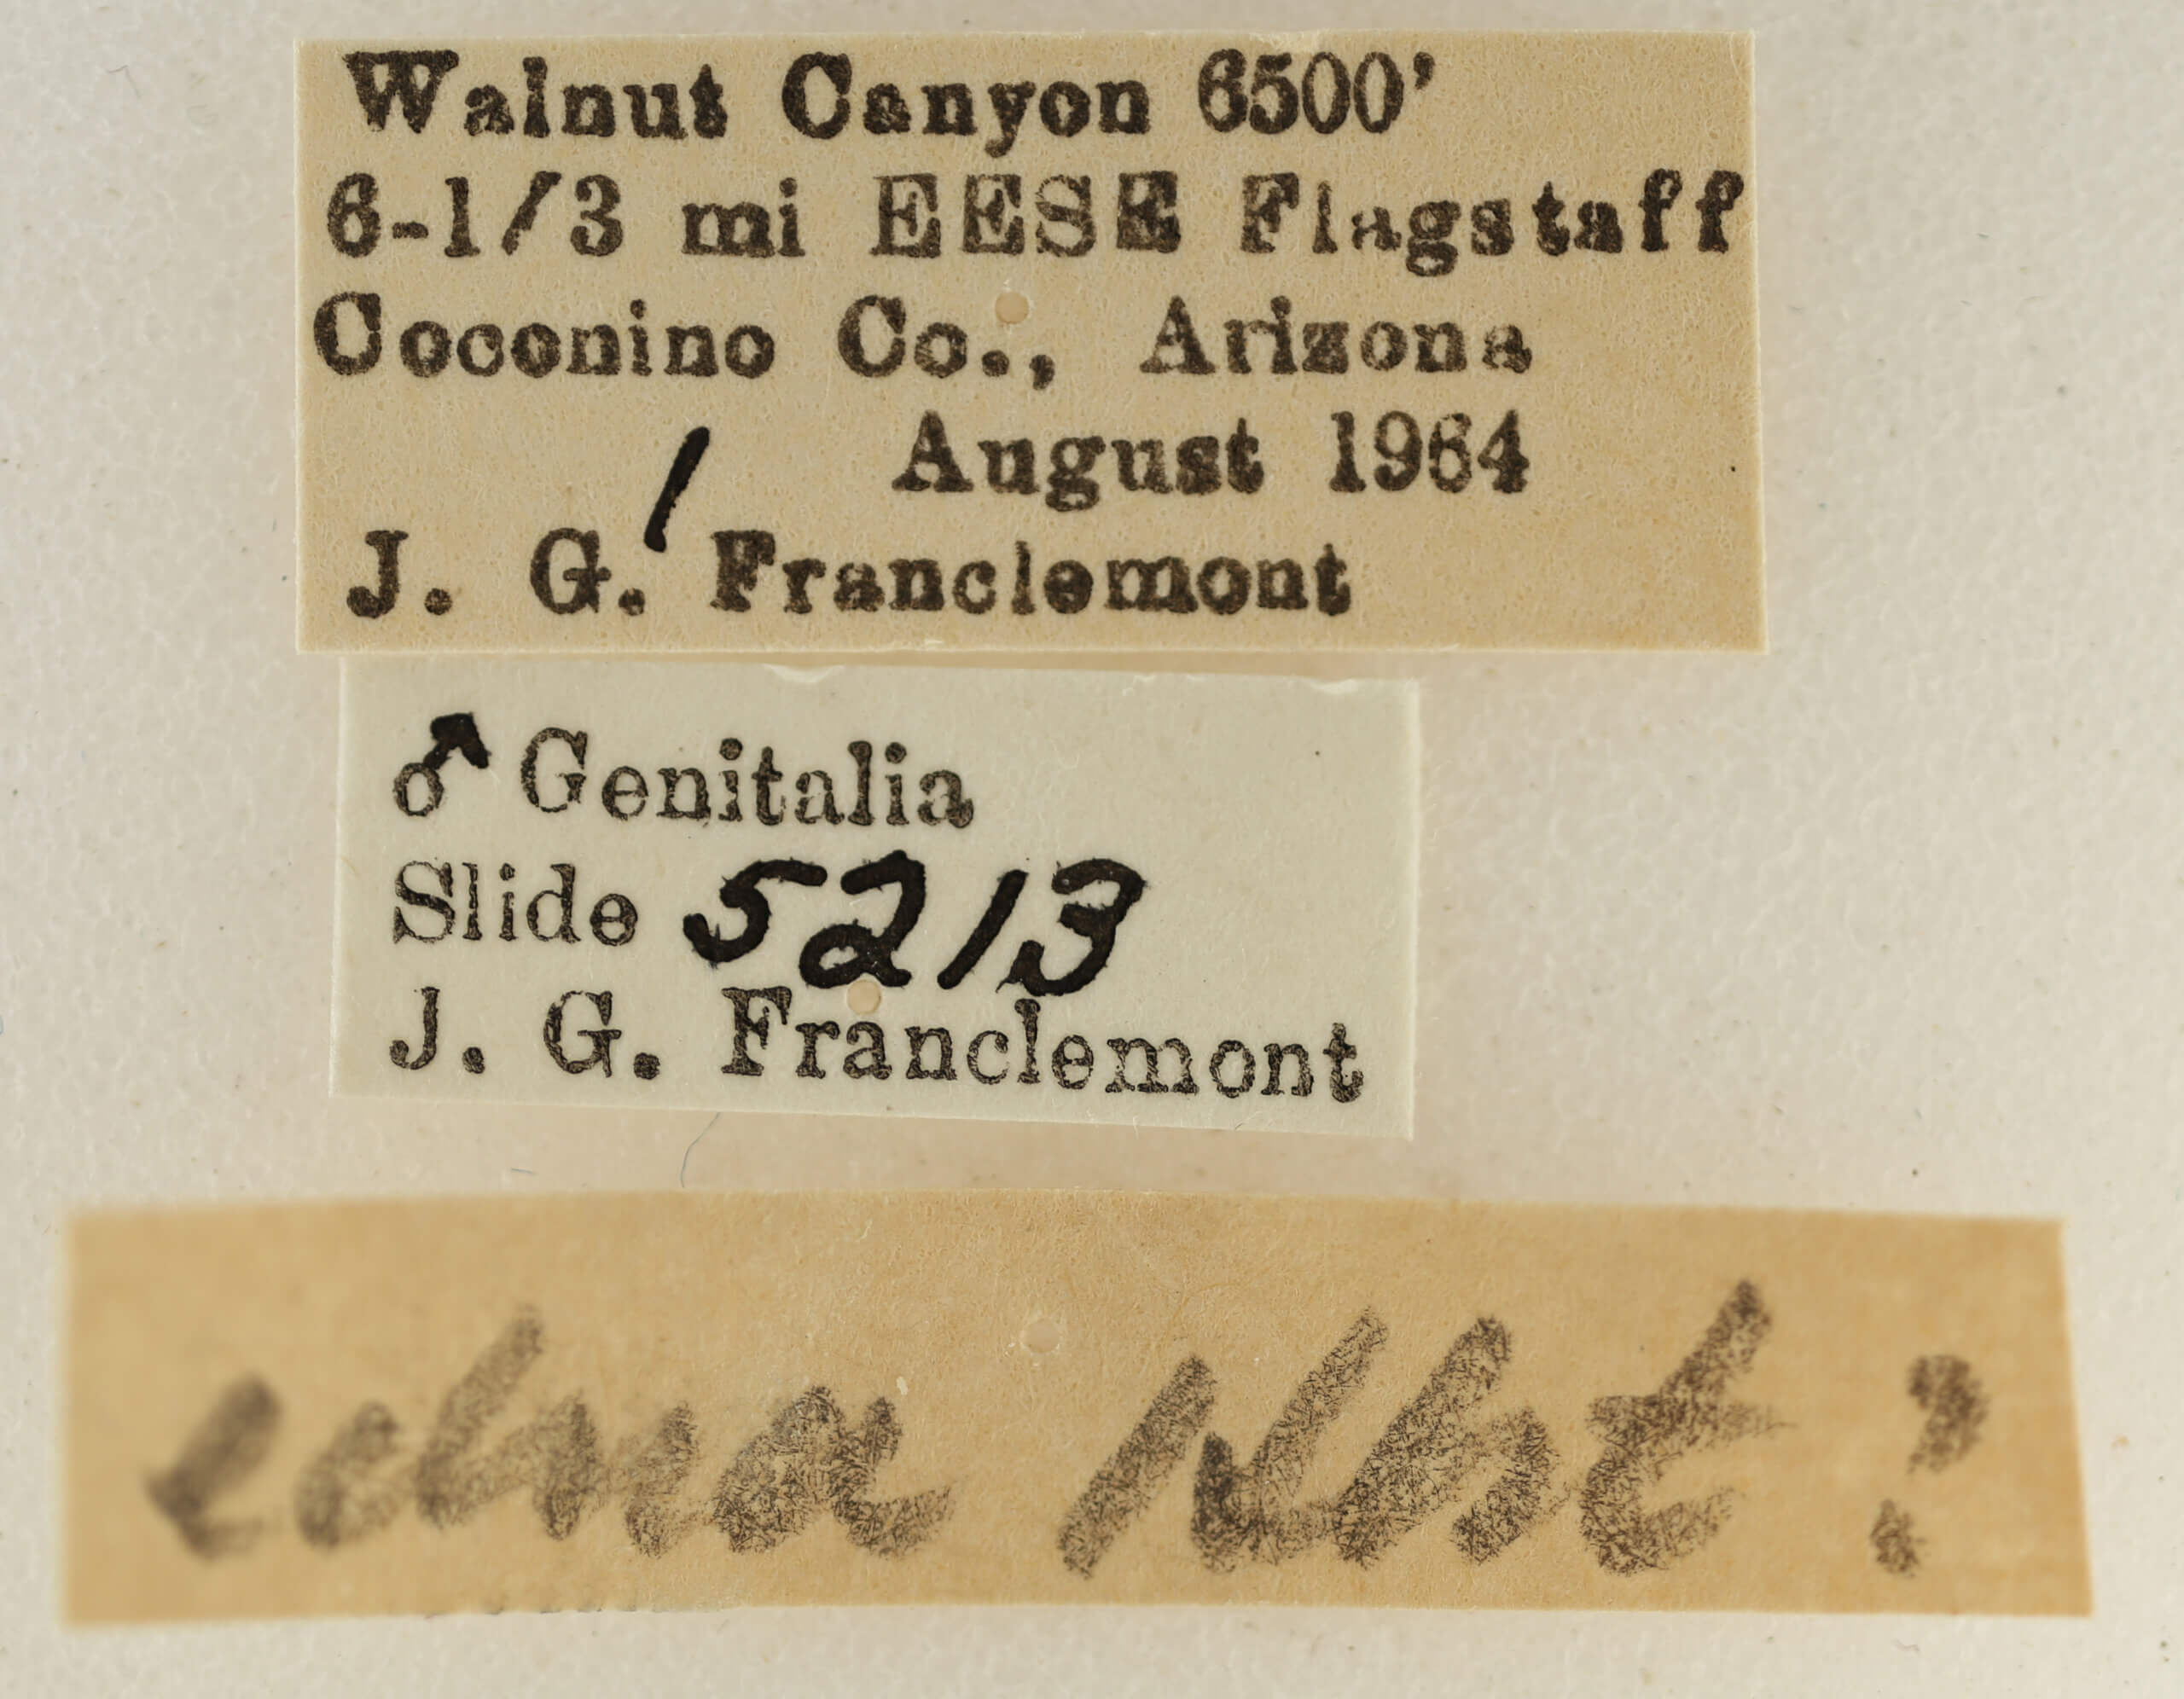 Walnut Canyon 6500'
6-1/3 mi EESE Flagstaff
Coconino Co., Arizona
1 August 1964
J. G. Franclemont
♂ Genitalia
Slide 5213
J. G. Franclemont
edna Nbt ?